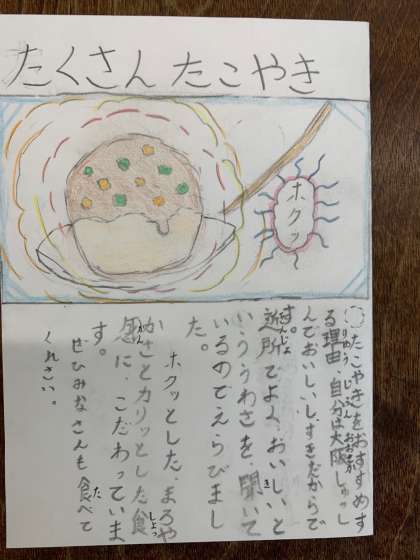 たくさん たこやき
ホクッ
◯たこやきをおすすめす
る理由、自分は大阪しゅっし
りゆう じぶん おおさか
んでおいしいし、すきだからで
す。
近所でよく、おいしいと
きんじょ
いううわさを、聞いて
き
いるのでえらびまし
た。
ホクッとした、まろや
かさとカリッとした食
しょっ
感に、こだわっていま
かん
す。
ぜひみなさんも食べて
た
くれさい。